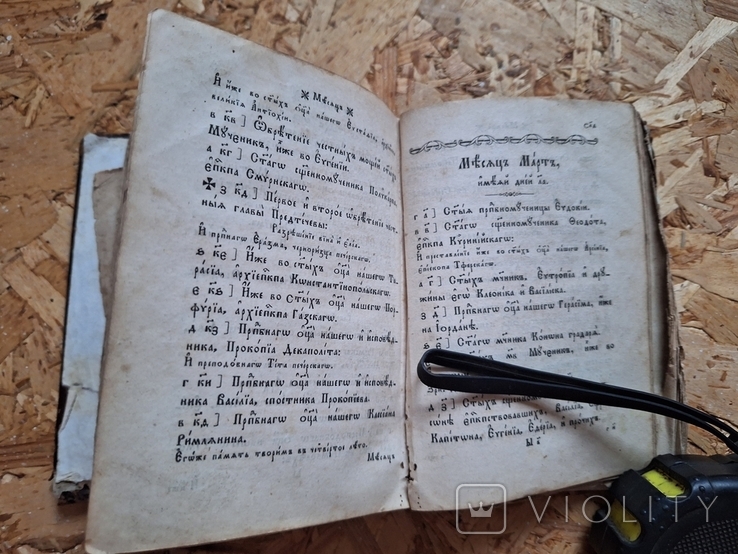 Мѣсяцъ
И иже во ст҃ыхъ ѻц҃а нашегѡ
великїѧ Антїохїи.
в кв ] Ѡбрѣтенїе честныхъ мощей ст҃ыхъ
Мученикъ, иже во Еѵгенїи.
а кг ] Ст҃агѡ сщ҃енномученика Поликарпа,
еп҃кпа Смѵрнскагѡ.
з кд ] Первое и второе ѡбрѣтенїе чест-
ныѧ главы Предтечевы:
Разрѣшенїе вїна и елеа.
И прп҃бнагѡ Еразма, черноризца печерскагѡ.
ѕ ке ] Иже во ст҃ыхъ ѻц҃а нашегѡ Та-
расїа, архїеп҃кпа Кѡнстантїнопольскагѡ.
в кѕ ] Иже во Ст҃ыхъ ѻц҃а нашегѡ Пор-
фѵрїа, архїеп҃кпа Газскагѡ.
д кз ] Прп҃бнагѡ ѻц҃а нашегѡ и исповѣд-
ника, Прокопїа Декаполїта:
И преподобнагѡ Тїта печерскагѡ.
г ки ] Прп҃бнагѡ ѻц҃а нашегѡ и исповѣд-
ника Васїлїа, спостника Прокопїева:
в кѳ ] Прп҃бнагѡ ѻц҃а нашегѡ Кассїана
Римлѧнина.
Егѡже память творимъ въ четвертое лѣто.
Мѣсяцъ
Мѣсяцъ Мартъ,
имѣѧй днїй ла
г а ] Ст҃ыѧ прп҃бномученицы Еѵдокїи.
в в ] Ст҃агѡ сщ҃енномученика Ѳеодота,
еп҃кпа Кѵринїйскагѡ:
И преставленїе иже во ст҃ыхъ ѻц҃а нашегѡ Арсенїа,
епископа Тферскагѡ.
а г ] Ст҃ыхъ мч҃никъ, Еѵтропїа и дру-
жины егѡ Клеоника и Васїлїска.
з д ] Прп҃бнагѡ ѻц҃а нашегѡ Герасїма, иже
на Іорданѣ.
ѕ е ] Ст҃агѡ мч҃ника Конѡна градарѧ.
Мученикъ, иже во
д з ] Ст҃ыхъ сщ҃енном
сѡнѣ еп҃кпствовавшихъ, Васїлїа,
Капїтѡна, Еѵгенїа, Еѳерїа, и прочихъ.
VIOLITY